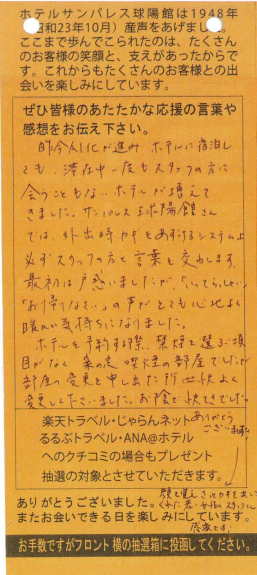 ホテルサンパレス球陽館は1948年
昭和23年10月）産声をあげました。
ここまで歩んでこられたのは、たくさん
のお客様の笑顔と、支えがあったからで
す。これからもたくさんのお客様との出
会いを楽しみにしています。
ぜひ皆様のあたたかな応援の言葉や
感想をお伝え下さい。
昨今人化が進み ホテルに宿泊し
ても、滞在中一度もスタッフの方に
会うこともないホテルが増えて
きました。サンパレス球陽館さん
では、外出時カギをあずけるシステム上
必ずスタッフの方と言葉を交わします。
最初は戸惑いましたが、「いってらっしゃい」
「お帰りなさい」の声がとても心地よく
暖かい気持ちになりました。
ホテルを予約する際、禁煙を選ぶ項
目がなく 喫煙の部屋でしたが
部屋の変更を申し出た所 快よく
変更して下さいました。お陰で快てきでした。
ありがとう
ございます
楽天トラベル・じゃらんネット
るるぶトラベル・ANA@ホテル
へのクチコミの場合もプレゼント
抽選の対象とさせていただきます。
顔を覚え さっとカギを出して
くれた若い女性のスタッフさん
感激です!
ありがとうございました。
またお会いできる日を楽しみにしています。
お手数ですがフロント横の抽選箱に投函してください。